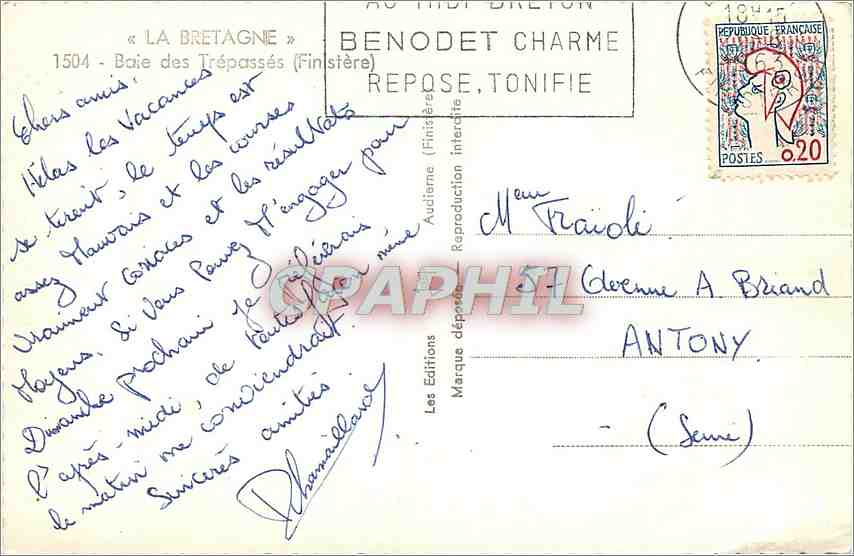 « LA BRETAGNE »
1504 - Baie des Trépassés (Finistère)
BENODET CHARME
REPOSE, TONIFIE
18H15
REPUBLIQUE FRANÇAISE
POSTES 0.20
Chers amis.
Hélas les Vacances
se tirent, le temps est
assez Mauvais et les courses
vraiment corsées et les résultats
Moyens. Si vous pouvez M'engager pour
Dimanche prochain je préférerais
l'après-midi, de toute façon même
le matin me conviendrait.
Sincères amitiés
Chamaillard
Les Editions Audierne (Finistère)
Marque déposée Reproduction interdite
CPAPHIL
Meur Fraïoli
57 Avenue A Briand
ANTONY.
(Seine)